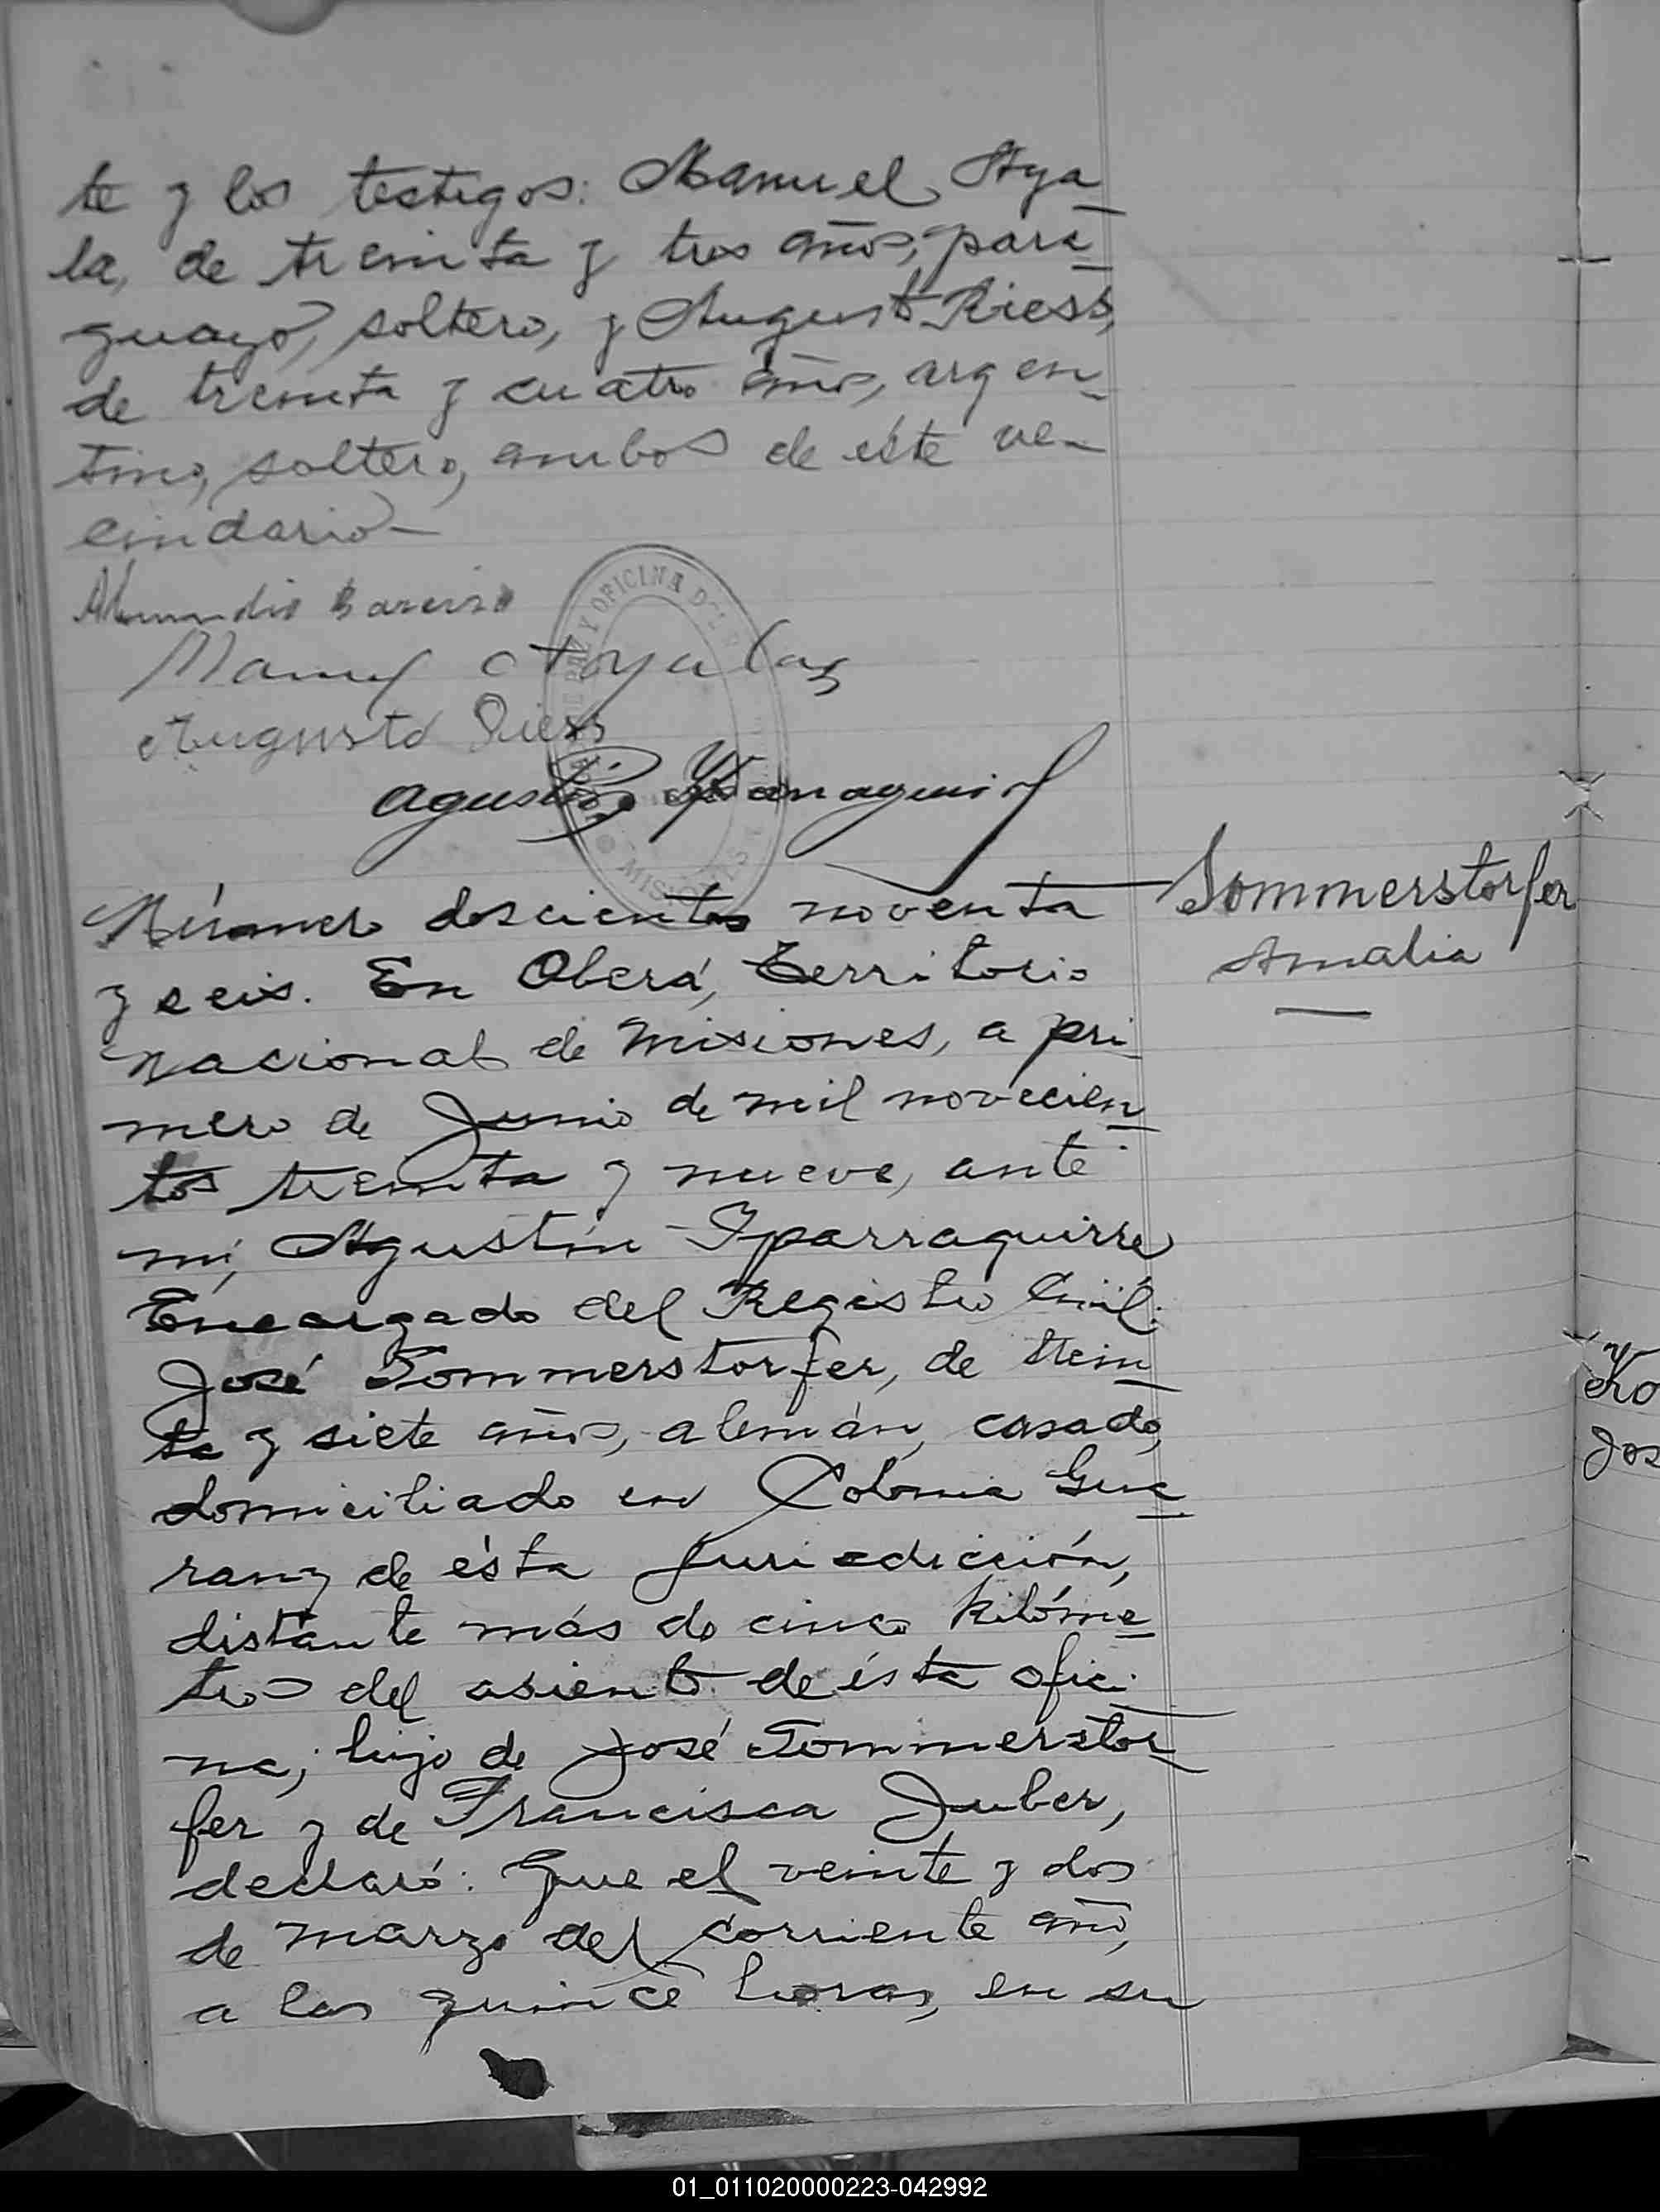 te y los testigos: Manuel Aya
la, de treinta y tres años, para
guayo, soltero, y Augusto Riess,
de treinta y cuatro años, argen
tino, soltero, ambos de éste ve-
cindario-
Barreiro
Manuel Ayala
Augusto Riess
PAZ Y OFICINA DEL
MISIONES
Agustín Yparraguirre
Número doscientos noventa
y seis. En Oberá, Territorio
nacional de Misiones, a pri
mero de Junio de mil novecien
tos treinta y nueve, ante
mí, Agustín Yparraguirre
Encargado del Registro Civil:
José Sommerstorfer, de trein
ta y siete años, alemán, casado,
domiciliado en Colonia Gua
rany de ésta jurisdicción,
distante más de cinco kilóme
tros del asiento de ésta ofici
na; hijo de José Sommerstor
fer y de Francisca Juber,
declaró: Que el veinte y dos
de marzo del corriente año,
a las quince horas, en su
Sommerstorfer
Amalia
Jos
01_011020000223-042992